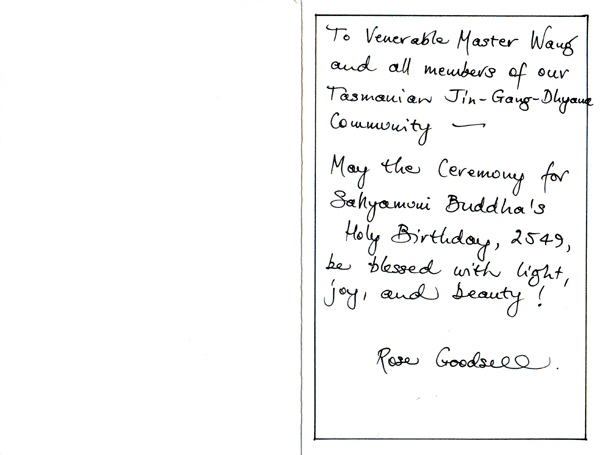 To Venerable Master Wang
and all members of our
Tasmanian Jin-Gang-Dhyana
Community —
May the Ceremony for
Sakyamuni Buddha's
Holy Birthday, 2549,
be blessed with light,
joy, and beauty!
Rose Goodsell.